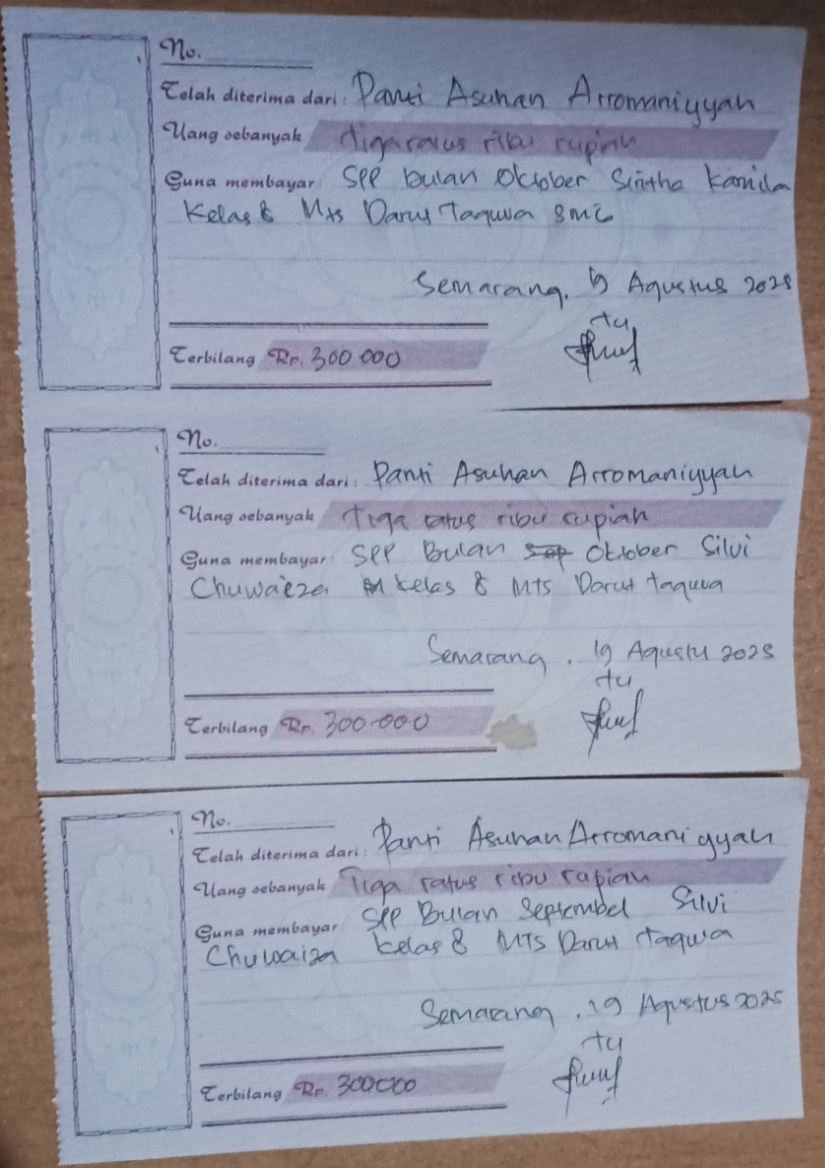 No.
Telah diterima dari: Panti Asuhan Arromaniyyah
Uang sebanyak tiga ratus ribu rupiah
Guna membayar: SPP bulan Oktober Sintha Kamila
Kelas 8 Mts Darut Taqwa SMG
Semarang, 19 Agustus 2025
tu
Terbilang Rp. 300 000
No.
Telah diterima dari: Panti Asuhan Arromaniyyah
Uang sebanyak Tiga ratus ribu rupiah
Guna membayar: SPP Bulan Oktober Silvi
Chuwaiza kelas 8 MTS Darut taquwa
Semarang, 19 Agustu 2025
tu
Terbilang Rp. 300.000
No.
Telah diterima dari: Panti Asuhan Arromaniyyah
Uang sebanyak Tiga ratus ribu rupiah
Guna membayar: SPP Bulan September Silvi
Chuwaiza kelas 8 MTS Darut taqwa
Semarang, 19 Agustus 2025
tu
Terbilang Rp. 300000